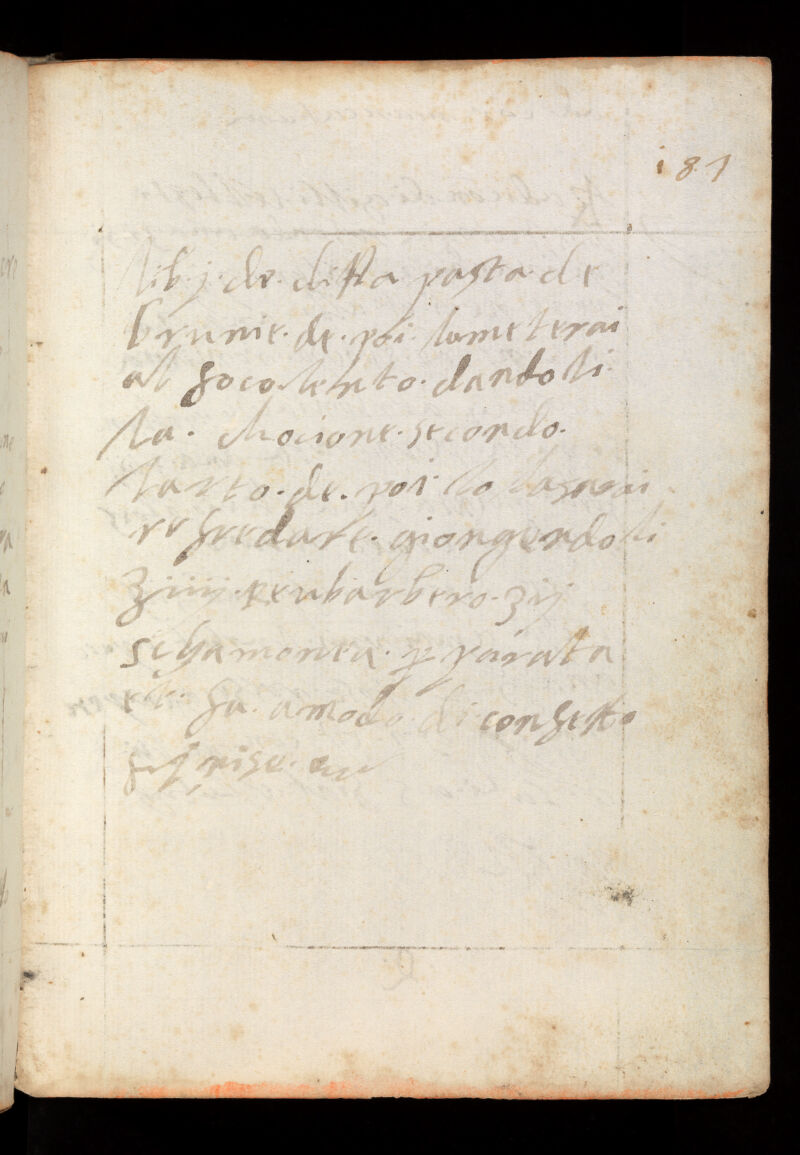 i81
lib j. de. ditta pasta de
brunie. de. poi. lameterai
al foco lento. dandoli
la. chocione. secondo.
larto. de. poi lo lasarai
refredare. giongendoli
ʒiiij. reubarbero. ʒij
schamonea. p parata
et. fa. a modo di confetto